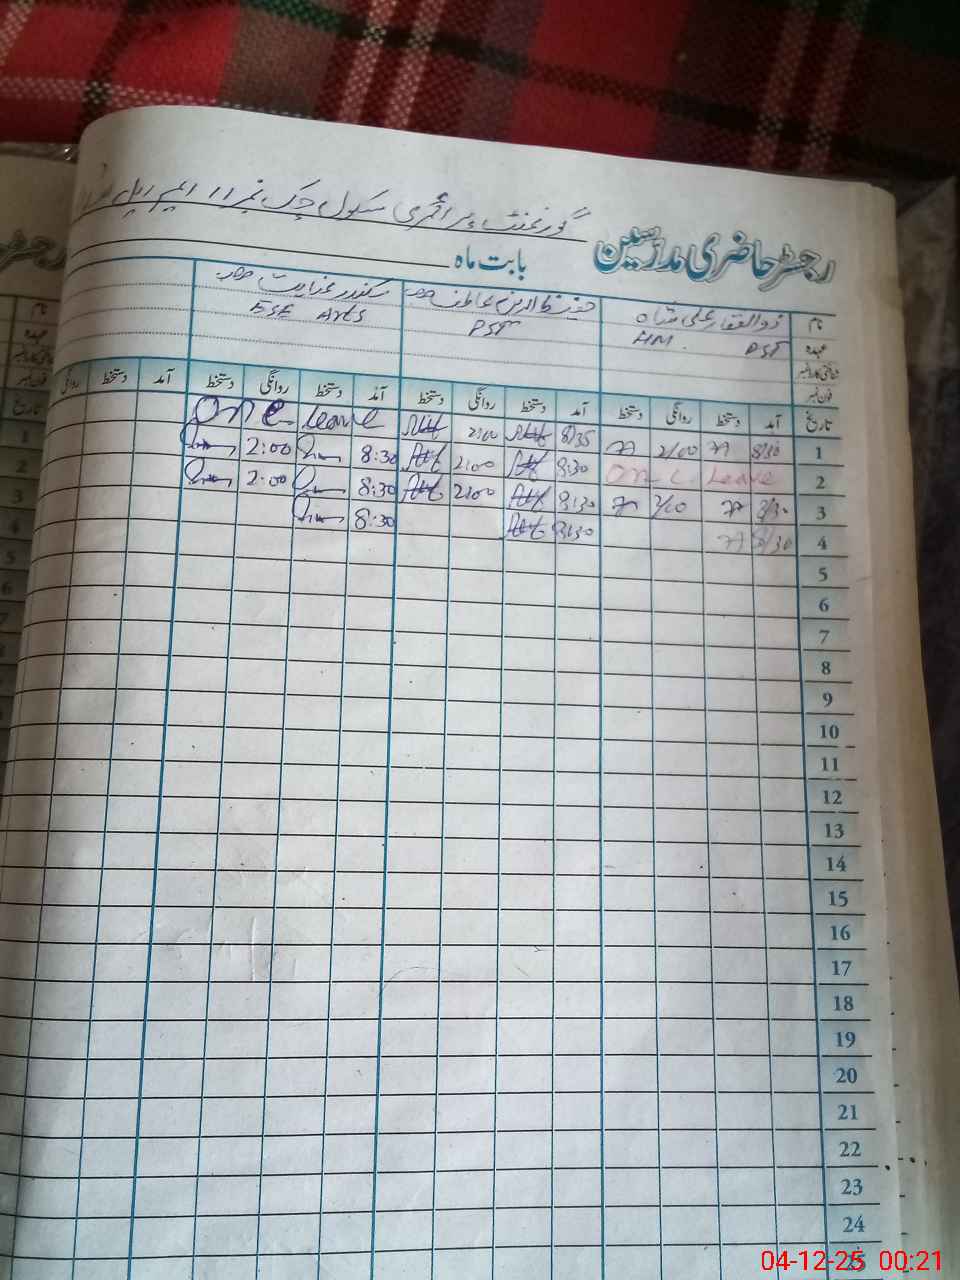 گورنمنٹ پرائمری سکول چک نمبر 11 ایم ایل
رجسٹر حاضری مدرسین
بابت ماہ
نام ذوالفقار علی شاہ حفیظ الدین عاطف صاحب سکندر عنایت صاحب
عہدہ HM. PST PST ESE Arts
شناختی کارڈ نمبر
فون نمبر
تاریخ آمد دستخط روانگی دستخط آمد دستخط روانگی دستخط آمد دستخط روانگی دستخط آمد دستخط روانگی
1 8/30 2/00 8/35 2:00 On C leave
2 On C. Leave 8:30 2:00 8:30 2:00
3 8/30 2/00 8:30 2:00 8:30 2:00
4 8/30 8:30 8:30
5
6
7
8
9
10
11
12
13
14
15
16
17
18
19
20
21
22
23
24
25
04-12-25 00:21